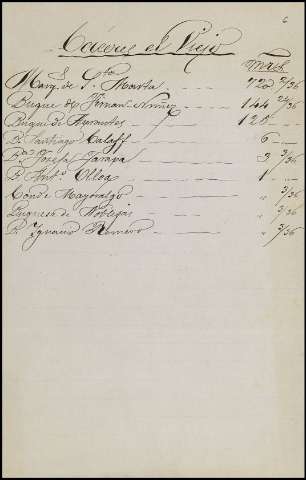 6
Cáceres el Viejo
Marq.s de S.ta Marta 720 2/36
Duque de Fernan Nuñez 144 24/36
Duque de Abrantes 120
D. Santiago Calaff 6
D.a Josefa Tarapa 3 3/36
D. Ant.o Ulloa 1
Conde Mayoralgo " 3/36
Duquesa de Noblejas " 3/36
D. Ignacio Romero " 3/36